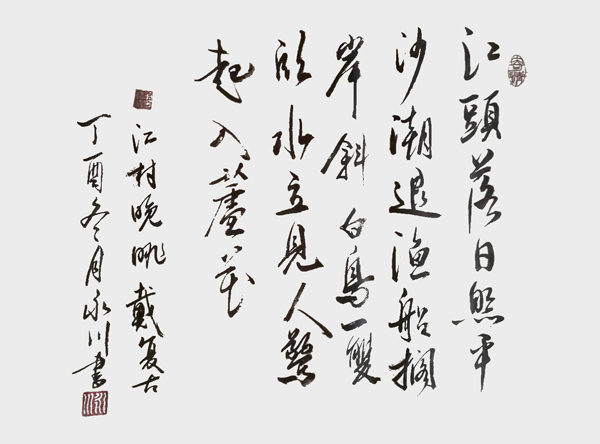 江頭落日照平
沙潮退渔船搁
岸斜白鳥一雙
临水立見人驚
起入蘆花
江村晚眺戴复古
丁酉冬月永川書